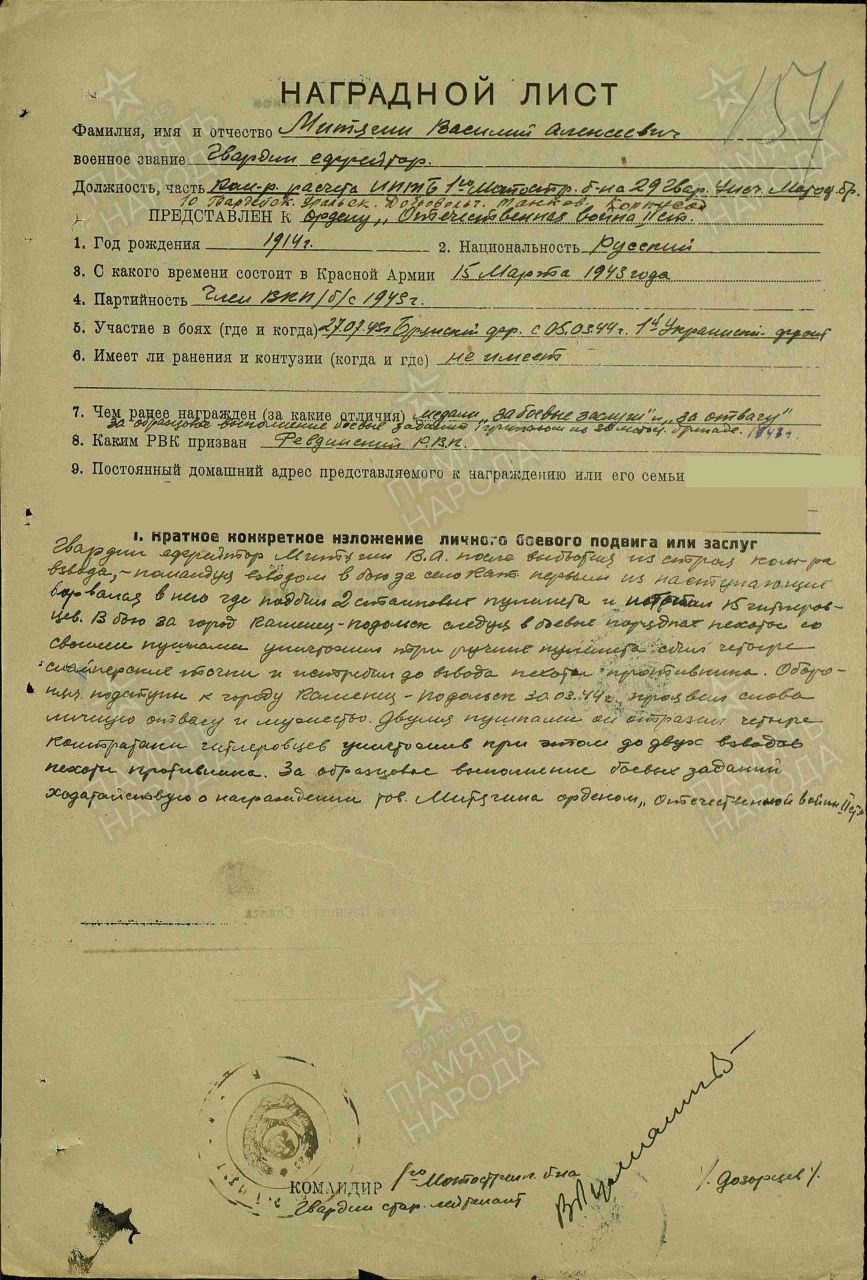 154
НАГРАДНОЙ ЛИСТ
Фамилия, имя и отчество Митягин Василий Алексеевич
военное звание Гвардии ефрейтор.
Должность, часть Ком-р расчета ИПТБ 1го Мотостр. б-на 29 Гвар. Унеч. Мотод бр.
10 Гвардейск. Уральск. Доброволь. Танков. Корпуса
ПРЕДСТАВЛЕН К ордену „Отечественная война II ст.
1. Год рождения 1914г. 2. Национальность Русский
3. С какого времени состоит в Красной Армии 15 Марта 1943 года
4. Партийность Член ВКП/б/ с 1943г.
5. Участие в боях (где и когда) 27.07.43г Брянский фр. с 05.03.44г. 1й Украинский фронт
6. Имеет ли ранения и контузии (когда и где) не имеет
7. Чем ранее награжден (за какие отличия) медали „за боевые заслуги" и „за отвагу"
за образцовое выполнение боевые задания приказом по 30 мотос. бригаде. 1943г.
8. Каким РВК призван Ревдинский РВК.
9. Постоянный домашний адрес представляемого к награждению или его семьи
I. Краткое конкретное изложение личного боевого подвига или заслуг
Гвардии ефрейтор Митягин В.А. после выбытия из строя ком-ра
взвода, - командуя взводом в бою за село первым из наступающих
ворвался в него где подбил 2 станковых пулемета и истребил 15 гитлеров-
цев. В бою за город Каменец-Подольск следуя в боевых порядках пехоты со
своими пушками уничтожил три ручные пулемета сбил четыре
снайперские точки и истребил до взвода пехоты противника. Оборо-
няя подступы к городу Каменец-Подольск 30.03.44г. проявил снова
личную отвагу и мужество. Двумя пушками он отразил четыре
контратаки гитлеровцев уничтожив при этом до двух взводов
пехоты противника. За образцовое выполнение боевых заданий
ходатайствую о награждении тов. Митягина орденом „Отечественной войны II ст"
КОМАНДИР 1го Мотострел. б-на
Гвардии стар. лейтенант /. Дозорцев /.
1941 1945
ПАМЯТЬ
НАРОДА